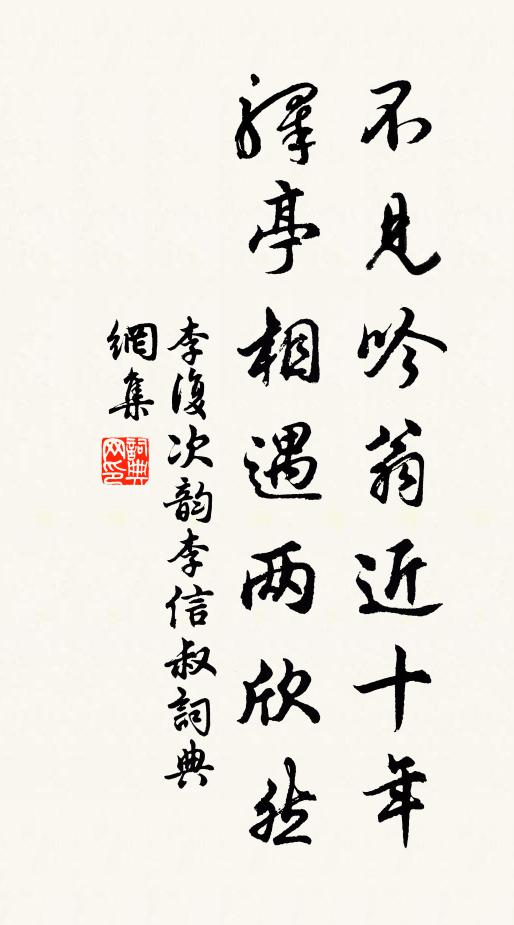 不見吟翁近十年
驛亭相遇两欣然
李復次韵李信叔詞典
網集
詞典
网印